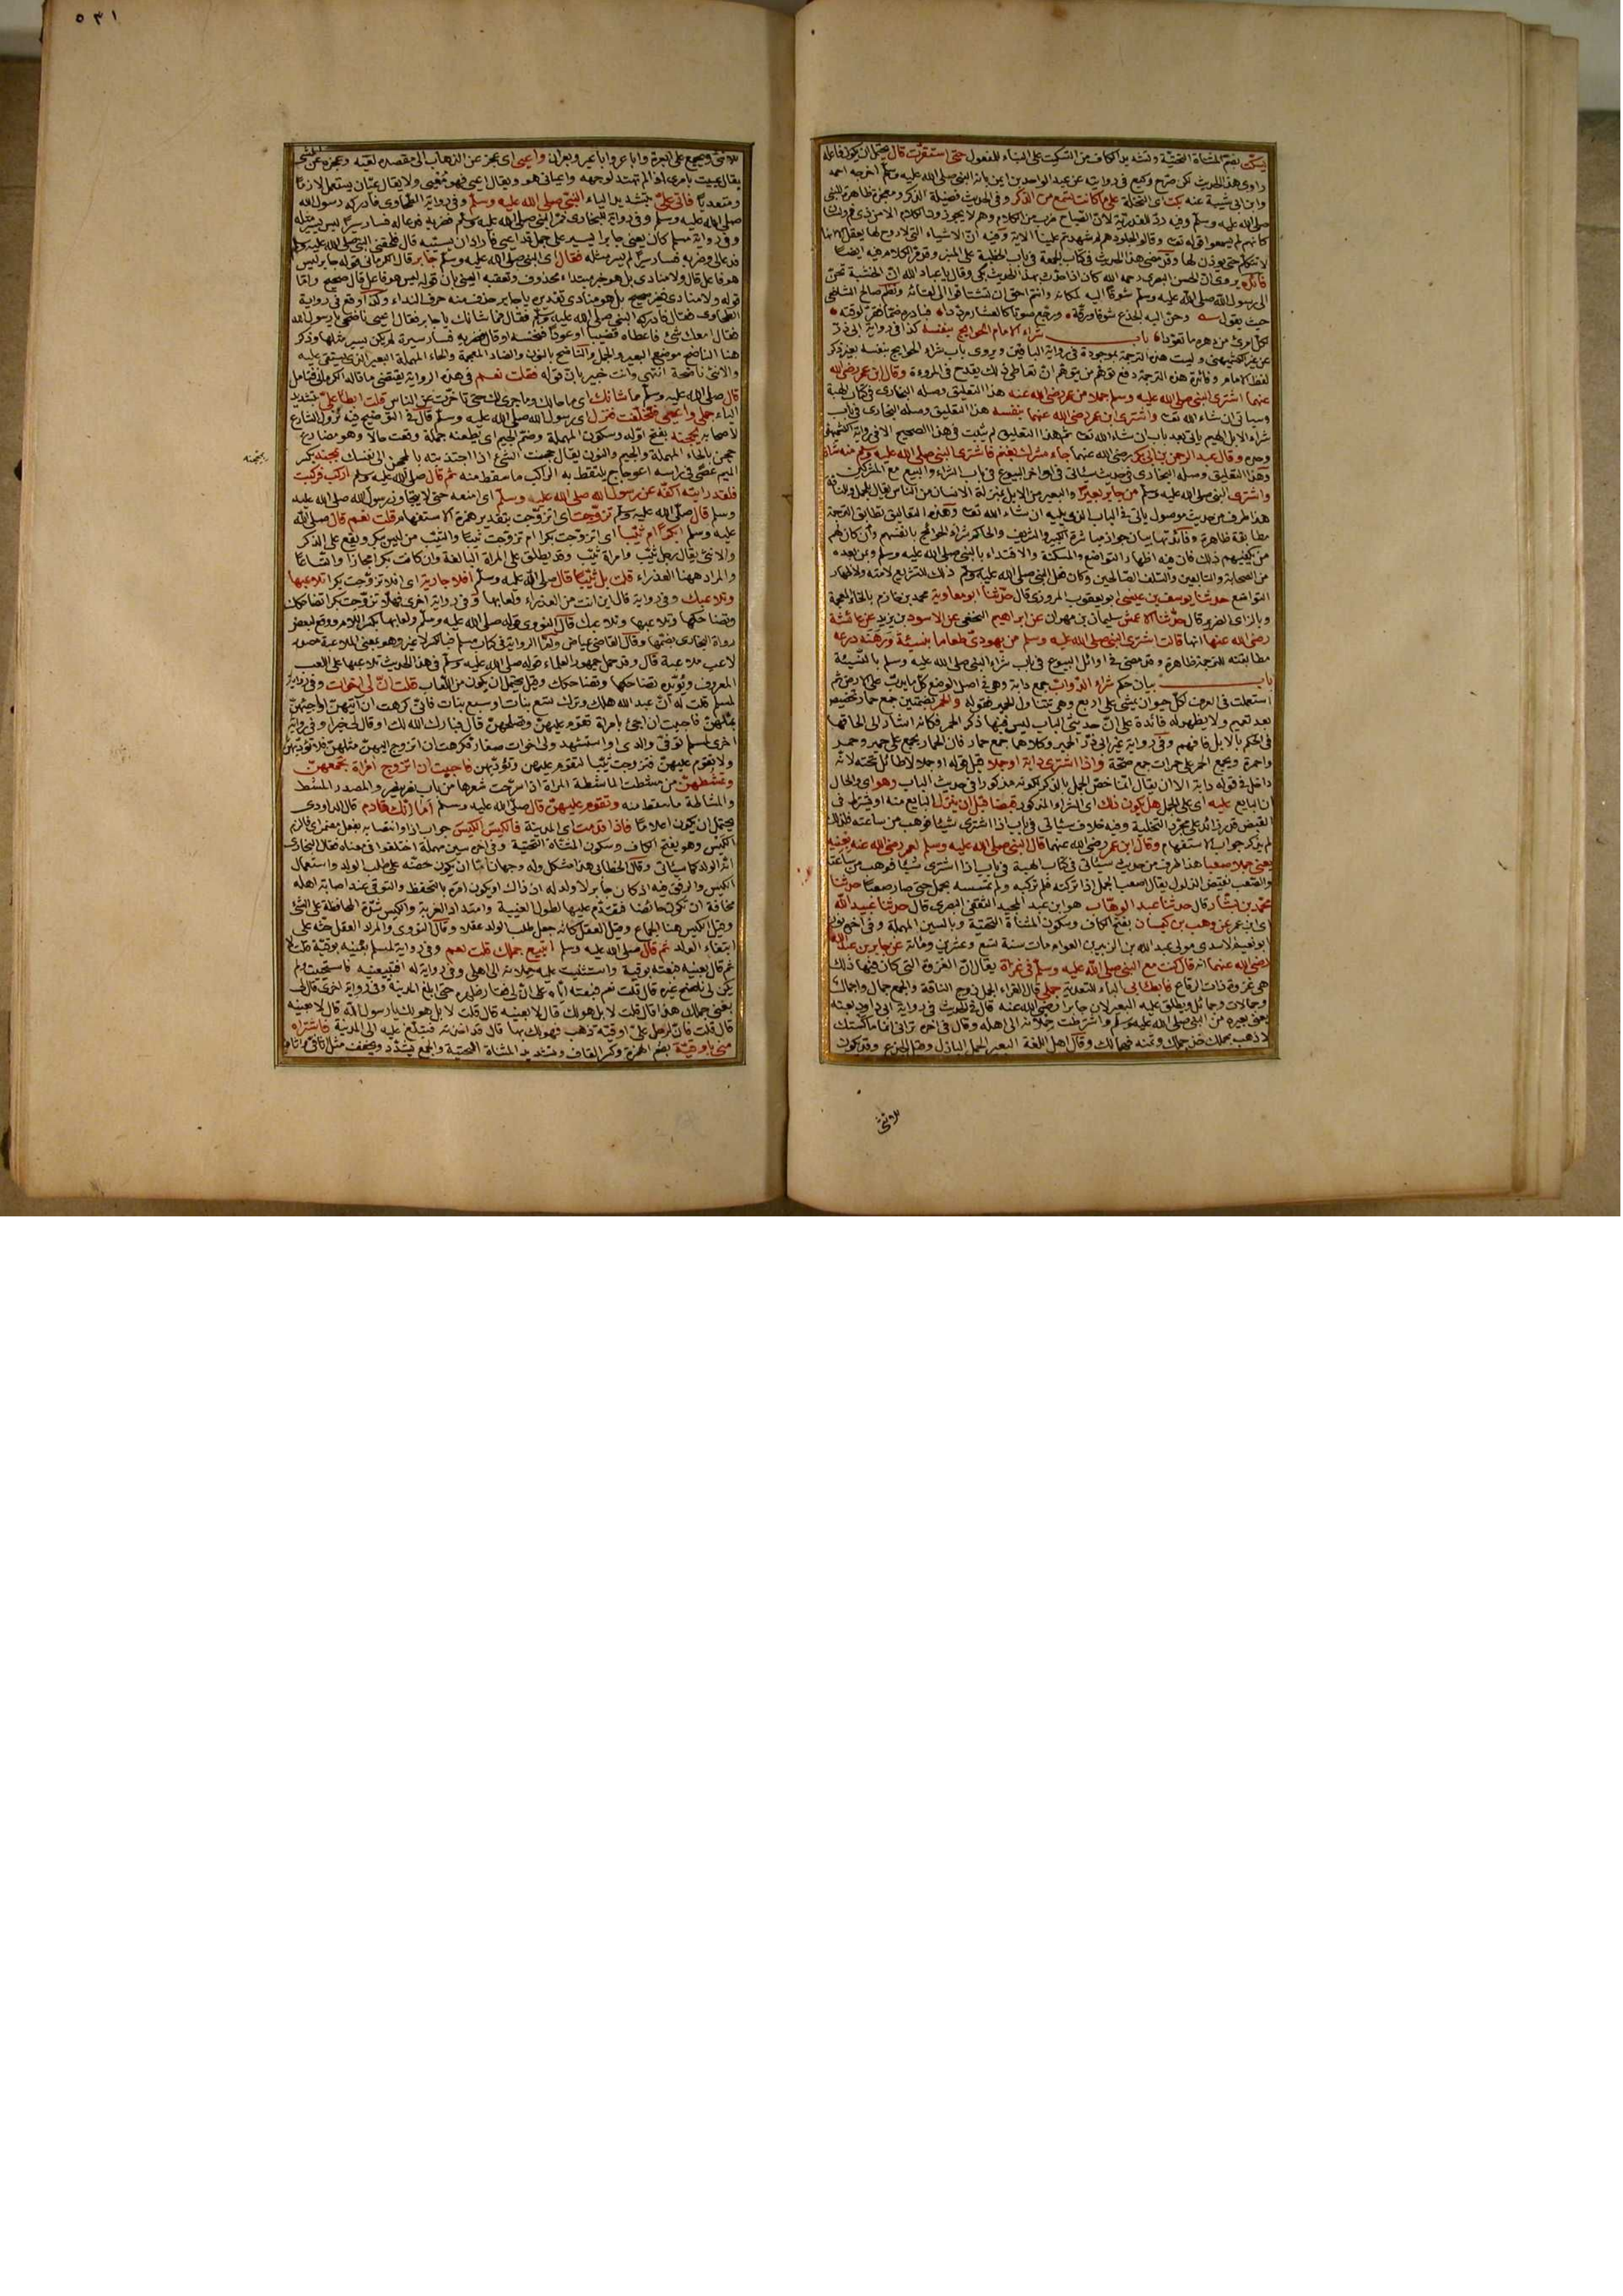 يسكت بضم المثناة التحتية وتشديد الكاف من التسكيت على البناء للمفعول حتى استقرت قال يحتمل ان يكون فاعله
راوى هذا الحديث لكن صرح وكيع في روايته عن عبد الواحد بن ايمن بانه النبي صلى الله عليه وسلم اخرجه احمد
وابن ابي شيبة عنه بكت اى النخلة على ما كانت تسمع من الذكر وفي الحديث فضيلة الذكر ومعجزة ظاهرة للنبي
صلى الله عليه وسلم وفيه رد للقدرية لان الصياح ضرب من الكلام وهم لا يجوزون الكلام الا من ذى فم ولسان
كانهم لم يسمعوا قوله تعالى وقالوا لجلودهم لم شهدتم علينا الاية وفيه ان الاشياء التي لا روح لها تعقل الا انها
لا تتكلم حتى يوذن لها وقد مضى هذا الحديث في كتاب الجمعة في باب الخطبة على المنبر وقد مر الكلام فيه ايضا
فائدة يروى ان الحسن البصرى رحمه الله كان اذا حدث بهذا الحديث بكى وقال يا عباد الله ان الخشبة تحن
الى رسول الله صلى الله عليه وسلم شوقا اليه لمكانه وانتم احق ان تشتاقوا الى لقائه ونظم صالح الشافعي
حيث يقول وحن اليه الجذع شوقا ورقة ورجع صوتا كالعشار مرددا فبادره ضما فقر لوقته
لكل امرئ من دهره ما تعودا باب شراء الامام الحوايج بنفسه كذا في رواية ابي ذر
عن غير الكشميهني وليست هذه الترجمة بموجودة في رواية الباقين ويروى باب شراء الحوايج بنفسه بغير ذكر
لفظ الامام وفائدة هذه الترجمة دفع توهم من يتوهم ان تعاطى ذلك يقدح في المروءة وقال ابن عمر رضي الله
عنهما اشترى النبي صلى الله عليه وسلم جملا من عمر رضي الله عنه هذا التعليق وصله البخارى في كتاب الهبة
وسياتى ان شاء الله تعالى واشترى ابن عمر رضي الله عنهما بنفسه هذا التعليق وصله البخارى في باب
شراء الابل الهيم ياتى بعد باب ان شاء الله تعالى ثم هذا التعليق لم يثبت في هذا الصحيح الا في رواية الكشميهني
وحده وقال عبد الرحمن بن ابي بكر رضي الله عنهما جاء مشرك بغنم فاشترى النبي صلى الله عليه وسلم منه شاة
وهذا التعليق وصله البخارى في حديث سياتى في اواخر البيوع في باب الشراء والبيع مع المشركين
واشترى النبي صلى الله عليه وسلم من جابر بعيرا والبعير من الابل بمنزلة الانسان من الناس يقال للجمل والناقة
هذا طرف من حديث موصول ياتى في الباب الذى يليه ان شاء الله تعالى وهذه التعاليق تطابق الترجمة
مطابقة ظاهرة وفائدتها بيان جواز مباشرة الكبير والشريف والحاكم شراء الحوائج بانفسهم وان كان لهم
من يكفيهم ذلك فان فيه اظهار التواضع والمسكنة والاقتداء بالنبي صلى الله عليه وسلم ومن بعده
من الصحابة والتابعين والسلف الصالحين وكان فعل النبي صلى الله عليه وسلم ذلك للتشريع لامته ولاظهار
التواضع حدثنا يوسف بن عيسى ابو يعقوب المروزى قال حدثنا ابو معاوية محمد بن خازم بالخاء المعجمة
وبالزاى الضرير قال حدثنا الاعمش سليمان بن مهران عن ابراهيم النخعي عن الاسود بن يزيد عن عائشة
رضي الله عنها انها قالت اشترى النبي صلى الله عليه وسلم من يهودى طعاما بنسيئة ورهنه درعه
مطابقته للترجمة ظاهرة وقد مضى في اوائل البيوع في باب شراء النبي صلى الله عليه وسلم بالنسيئة
باب بيان حكم شراء الدواب جمع دابة وهي في اصل الوضع كل ما يدب على الارض ثم
استعملت في العرف لكل حيوان يمشى على اربع وهي تتناول الحمير فقوله والحمر بضمتين جمع حمار تخصيص
بعد تعميم ولا يظهر له فائدة على ان حديثي الباب ليس فيهما ذكر الحمر فكانه اشار الى الحاقها
في الحكم بالابل فافهم وفي رواية غير ابي ذر الحمير وكلاهما جمع حمار فان الحمار يجمع على حمير وحمر
واحمرة ويجمع الحمر على حمرات جمع صحة واذا اشترى دابة او جملا قيل قوله او جملا لا طائل تحته لانه
داخل في قوله دابة الا ان يقال انما خص الجمل بالذكر لكونه مذكورا في حديث الباب وهو اى والحال
ان البايع عليه اى على الجمل هل يكون ذلك اى الشراء المذكور قبضا قبل ان ينزل البايع منه او يشترط في
القبض قدر زائد على مجرد التخلية وفيه خلاف سياتى في باب اذا اشترى شيئا فوهب من ساعته فلذلك
لم يذكر جواب الاستفهام وقال ابن عمر رضي الله عنهما قال النبي صلى الله عليه وسلم لعمر رضي الله عنه بعنيه
يعنى جملا صعبا هذا طرف من حديث سياتى في كتاب الهبة في باب اذا اشترى شيئا فوهب من ساعته
والصعب نقيض الذلول يقال اصعب الجمل اذا تركته فلم تركبه ولم يمسسه بحمل حتى صار صعبا حدثنا
محمد بن بشار قال حدثنا عبد الوهاب هو ابن عبد المجيد الثقفي البصرى قال حدثنا عبيد الله
اى ابن عمر عن وهب بن كيسان بفتح الكاف وسكون المثناة التحتية وبالسين المهملة وفي اخره نون
ابو نعيم الاسدى مولى عبد الله بن الزبير بن العوام مات سنة تسع وعشرين ومائة عن جابر بن عبد الله
رضي الله عنهما انه قال كنت مع النبي صلى الله عليه وسلم في غزاة يقال ان الغزوة التي كان فيها ذلك
هي غزوة ذات الرقاع فابطأ بي الباء للتعدية جملي قال الفراء الجمل زوج الناقة والجمع جمال واجمال
وجمالات وجمائل ويطلق عليه البعير لان جابرا رضي الله عنه قال في الحديث في رواية ابى داود بعته
يعنى بعيره من النبي صلى الله عليه وسلم واشترطت حملانه الى اهله وقال في اخره ترانى انما ماكستك
لاذهب بجملك خذ جملك وثمنه فهما لك وقال اهل اللغة البعير الجمل البازل وقيل الجذع وقد يكون
للانثى
٥٣١
للانثى ويجمع على ابعرة واباعر واباعير وبعران واعيى اى عجز عن الذهاب الى مقصده لعيه وعجزه عن المشى
يقال عييت بامرى اذا لم تهتد لوجهه واعيانى هو ويقال اعيى فهو معيى ولا يقال عيان يستعمل لازما
ومتعديا فاتى علي بتشديد الياء النبي صلى الله عليه وسلم وفي رواية الطحاوى فادركه رسول الله
صلى الله عليه وسلم وفي رواية للبخارى فمر النبي صلى الله عليه وسلم فضربه فدعا له فسار سيرا ليس يسير مثله
وفي رواية مسلم كان يعنى جابرا يسير على جمل قد اعيى فاراد ان يسيبه قال فلحقنى النبي صلى الله عليه وسلم
فدعا لى وضربه فسار سيرا لم يسر مثله فقال اى النبي صلى الله عليه وسلم جابر قال الكرمانى قوله جابر ليس
هو فاعل قال ولا منادى بل هو خبر مبتداء محذوف وتعقبه العيني بان قوله ليس هو فاعل قال صحيح واما
قوله ولا منادى غير صحيح بل هو منادى تقديره يا جابر حذف منه حرف النداء وكذا وقع في رواية
الطحاوى فقال فادركه النبي صلى الله عليه وسلم فقال ما شانك يا جابر فقال اعيى ناضحى يا رسول الله
فقال امعك شئ فاعطاه قضيبا او عودا فنخسه او قال ضربه فسار سيرة لم يكن يسير مثلها وذكر
هنا الناضح موضع البعير والجمل والناضح بالنون والضاد المعجمة والحاء المهملة البعير الذى يستقى عليه
والانثى ناضحة انتهى وانت خبير بان قوله فقلت نعم في هذه الرواية يقتضى ما قاله الكرمانى فتامل
قال صلى الله عليه وسلم ما شانك اى ما حالك وما جرى لك حتى تاخرت عن الناس قلت ابطأ علي بتشديد
الياء جملى واعيى فتخلفت فنزل اى رسول الله صلى الله عليه وسلم قال في التوضيح فيه نزول الشارع
لاصحابه يحجنه بفتح اوله وسكون المهملة وضم الجيم اى يطعنه جملة وقعت حالا وهو مضارع
حجن بالحاء المهملة والجيم والنون يقال حجنت الشئ اذا اجتذبته بالمحجن الى نفسك بمحجنه بكسر
بمحجنه
الميم عصى في راسه اعوجاج يلتقط به الراكب ما سقط منه ثم قال صلى الله عليه وسلم اركب فركبت
فلقد رايته اكفه عن رسول الله صلى الله عليه وسلم اى امنعه حتى لا يتجاوز رسول الله صلى الله عليه
وسلم قال صلى الله عليه وسلم تزوجت اى اتزوجت بتقدير همزة الاستفهام قلت نعم قال صلى الله
عليه وسلم ابكرا ام ثيبا اى اتزوجت بكرا ام تزوجت ثيبا والثيب من ليس ببكر ويقع على الذكر
والانثى يقال رجل ثيب وامراة ثيب وقد يطلق على المراة البالغة وان كانت بكرا مجازا واتساعا
والمراد ههنا العذراء قلت بل ثيبا قال صلى الله عليه وسلم افلا جارية اى افلا تزوجت بكرا تلاعبها
وتلاعبك وفي رواية قال اين انت من العذراء ولعابها وفي رواية اخرى فهلا تزوجت بكرا تضاحكك
وتضاحكها وتلاعبها وتلاعبك قال النووى قوله صلى الله عليه وسلم ولعابها بكسر اللام ووقع لبعض
رواة البخارى بضمها وقال القاضى عياض واما الرواية في كتاب مسلم فبالكسر لا غير وهو بمعنى الملاعبة مصدر
لاعب ملاعبة قال وقد حمل جمهور العلماء قوله صلى الله عليه وسلم في هذا الحديث تلاعبها على اللعب
المعروف ويؤيده تضاحكها وتضاحكك وقيل يحتمل ان يكون من اللعاب قلت ان لى اخوات وفي رواية
لمسلم قلت له ان عبد الله هلك وترك تسع بنات او سبع بنات فانى كرهت ان آتيهن او اجيئهن
بمثلهن فاحببت ان اجئ بامراة تقوم عليهن وتصلحهن قال فبارك الله لك او قال لى خيرا وفي رواية
اخرى لمسلم توفى والدى او استشهد ولى اخوات صغار فكرهت ان اتزوج اليهن مثلهن فلا تؤدبهن
ولا تقوم عليهن فتزوجت ثيبا لتقوم عليهن وتؤدبهن فاحببت ان اتزوج امراة تجمعهن
وتمشطهن من مشطت الماشطة المراة اذا سرحت شعرها من باب نصر ينصر والمصدر المشط
والمشاطة ما سقط منه وتقوم عليهن قال صلى الله عليه وسلم اما انك قادم قال الداودى
يحتمل ان يكون اعلاما فاذا قدمت اى المدينة فالكيس الكيس جواب اذا وانتصابه بفعل مضمر اى فالزم
الكيس وهو بفتح الكاف وسكون المثناة التحتية وفي اخره سين مهملة اختلفوا في معناه فقال البخارى
انه الولد كما سياتى وقال الخطابى هذا مشكل وله وجهان اما ان يكون حضه على طلب الولد واستعمال
الكيس والرفق فيه اذ كان جابر لا ولد له اذ ذاك او يكون امره بالتحفظ والتوقى عند اصابة اهله
مخافة ان تكون حائضا فيقدم عليها لطول الغيبة وامتداد الغربة والكيس شدة المحافظة على الشئ
وقيل الكيس هنا الجماع وقيل العقل كانه جعل طلب الولد عقلا وقال النووى والمراد العقل حثه على
ابتغاء الولد ثم قال صلى الله عليه وسلم اتبيع جملك قلت نعم وفي رواية لمسلم بعنيه بوقية قلت لا
ثم قال بعنيه فبعته بوقية واستثنيت عليه حملانه الى اهلى وفي رواية له افتبيعنيه فاستحييت ولم
يكن لى ناضح غيره قال قلت نعم فبعته اياه على ان لى فقار ظهره حتى ابلغ المدينة وفي رواية اخرى قال لى
بعنى جملك هذا قال قلت لا بل هو لك قال لا بعنيه قال قلت لا بل هو لك يا رسول الله قال لا بعنيه
قال قلت فان لرجل علي اوقية ذهب فهو لك بها قال قد اخذته فتبلغ عليه الى المدينة فاشتراه
منى باوقية بضم الهمزة وكسر القاف وتشديد المثناة التحتية والجمع يشدد ويخفف مثل اثافى واثاف